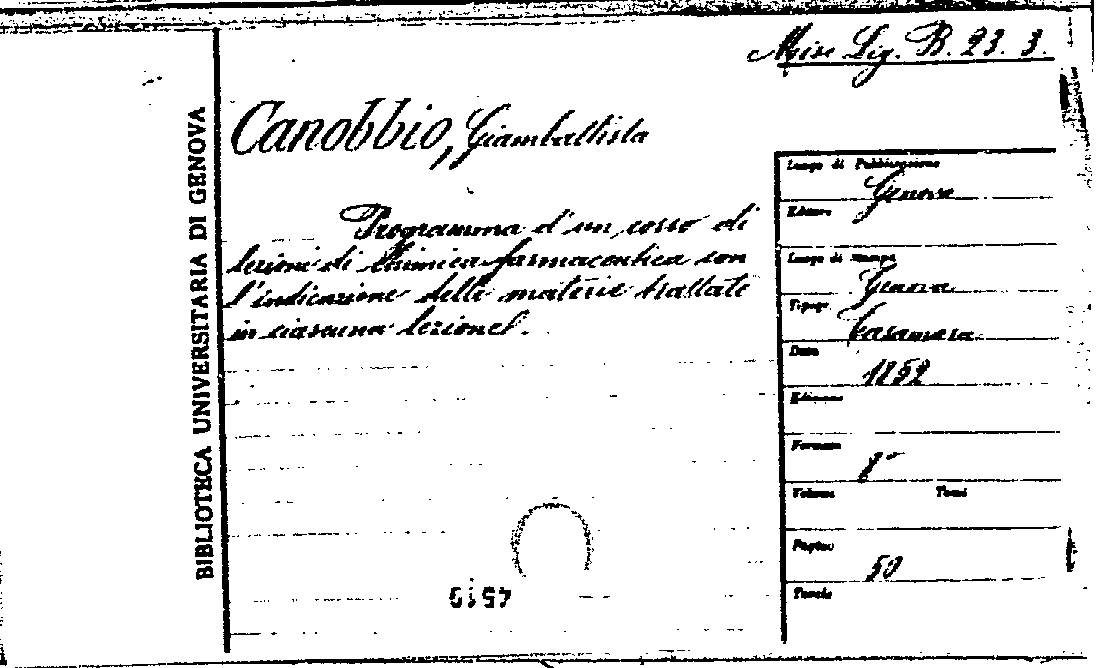 Misc. Lig. B. 23. 3.
BIBLIOTECA UNIVERSITARIA DI GENOVA
Canobbio, Giambattista
Programma d'un corso di
lezioni di Chimica farmaceutica con
l'indicazione delle materie trattate
in ciascuna lezione.
Luogo di Pubblicazione
Genova
Editore
Luogo di stampa
Genova
Tipogr.
Casamara
Data
1852
Edizione
Formato
8°
Volume Tomi
Pagine
50
Tavole